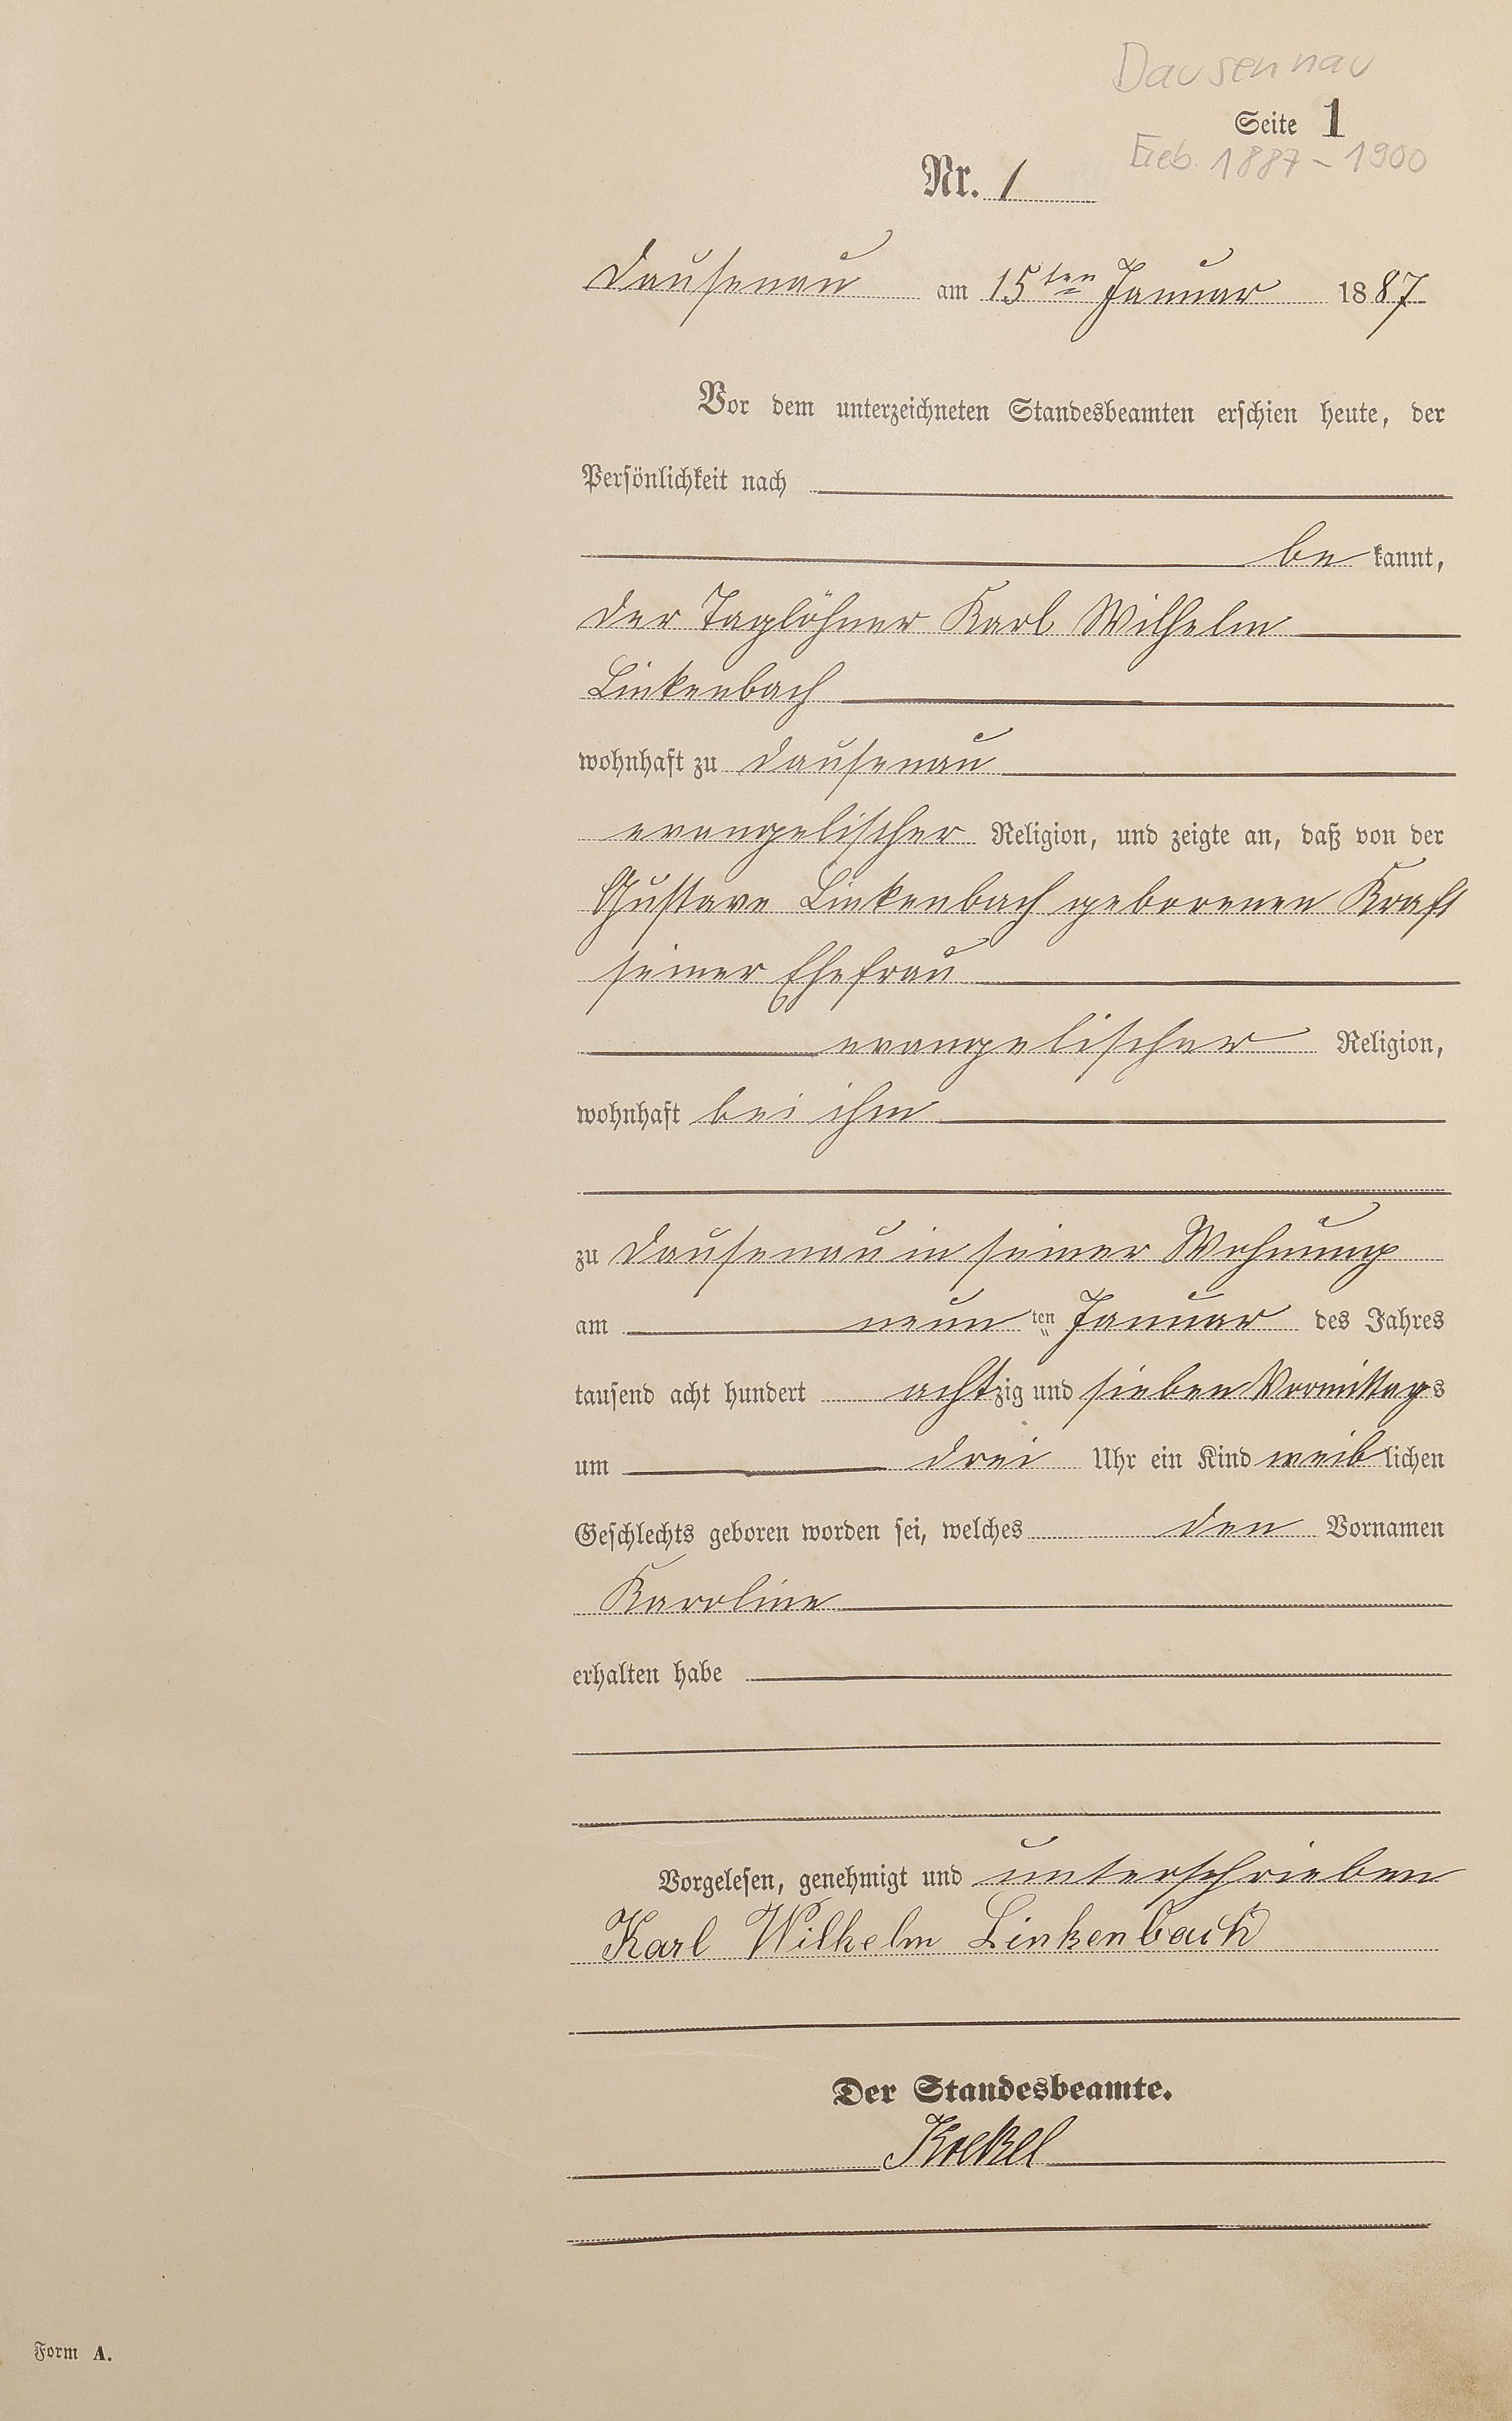 Dausennau
Seite 1
Geb. 1887 - 1900
Nr. 1
Dausenau am 15ten Januar 1887
Vor dem unterzeichneten Standesbeamten erschien heute, der
Persönlichkeit nach
bekannt,
der Taglöhner Karl Wilhelm
Linkenbach
wohnhaft zu Dausenau
evangelischer Religion, und zeigte an, daß von der
Gustave Linkenbach geborenen Kraft
seiner Ehefrau
evangelischer Religion,
wohnhaft bei ihm
zu Dausenau in seiner Wohnung
am neunten Januar des Jahres
tausend acht hundert achtzig und sieben Vormittags
um drei Uhr ein Kind weiblichen
Geschlechts geboren worden sei, welches den Vornamen
Karoline
erhalten habe
Vorgelesen, genehmigt und unterschrieben
Karl Wilhelm Linkenbach
Der Standesbeamte.
Form A.